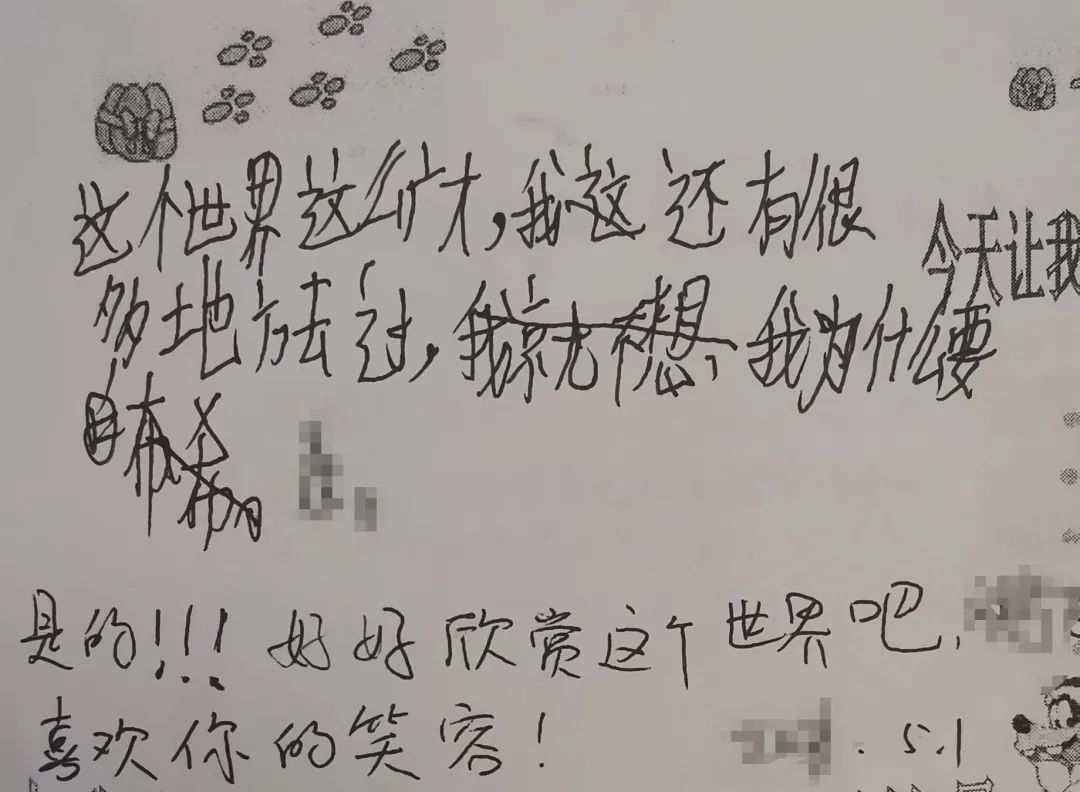 这个世界这么广大,我这还有很
多地方去过,我就不想、我为什么要
自
今天让我
是的!!!好好欣赏这个世界吧,
喜欢你的笑容! 5.1